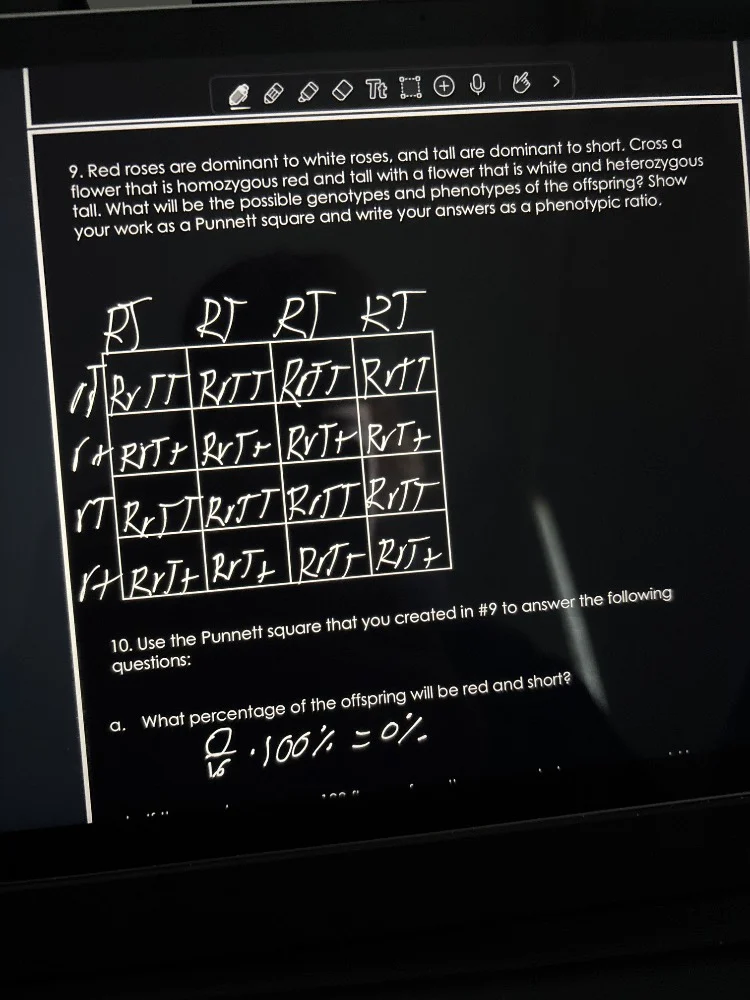 Tt
9. Red roses are dominant to white roses, and tall are dominant to short. Cross a
flower that is homozygous red and tall with a flower that is white and heterozygous
tall. What will be the possible genotypes and phenotypes of the offspring? Show
your work as a Punnett square and write your answers as a phenotypic ratio.
RT RT RT RT
rT RrTT RrTT RrTT RrTT
rt RrTt RrTt RrTt RrTt
rT RrTT RrTT RrTT RrTT
rt RrTt RrTt RrTt RrTt
10. Use the Punnett square that you created in #9 to answer the following
questions:
a. What percentage of the offspring will be red and short?
0/16 · 100% = 0%